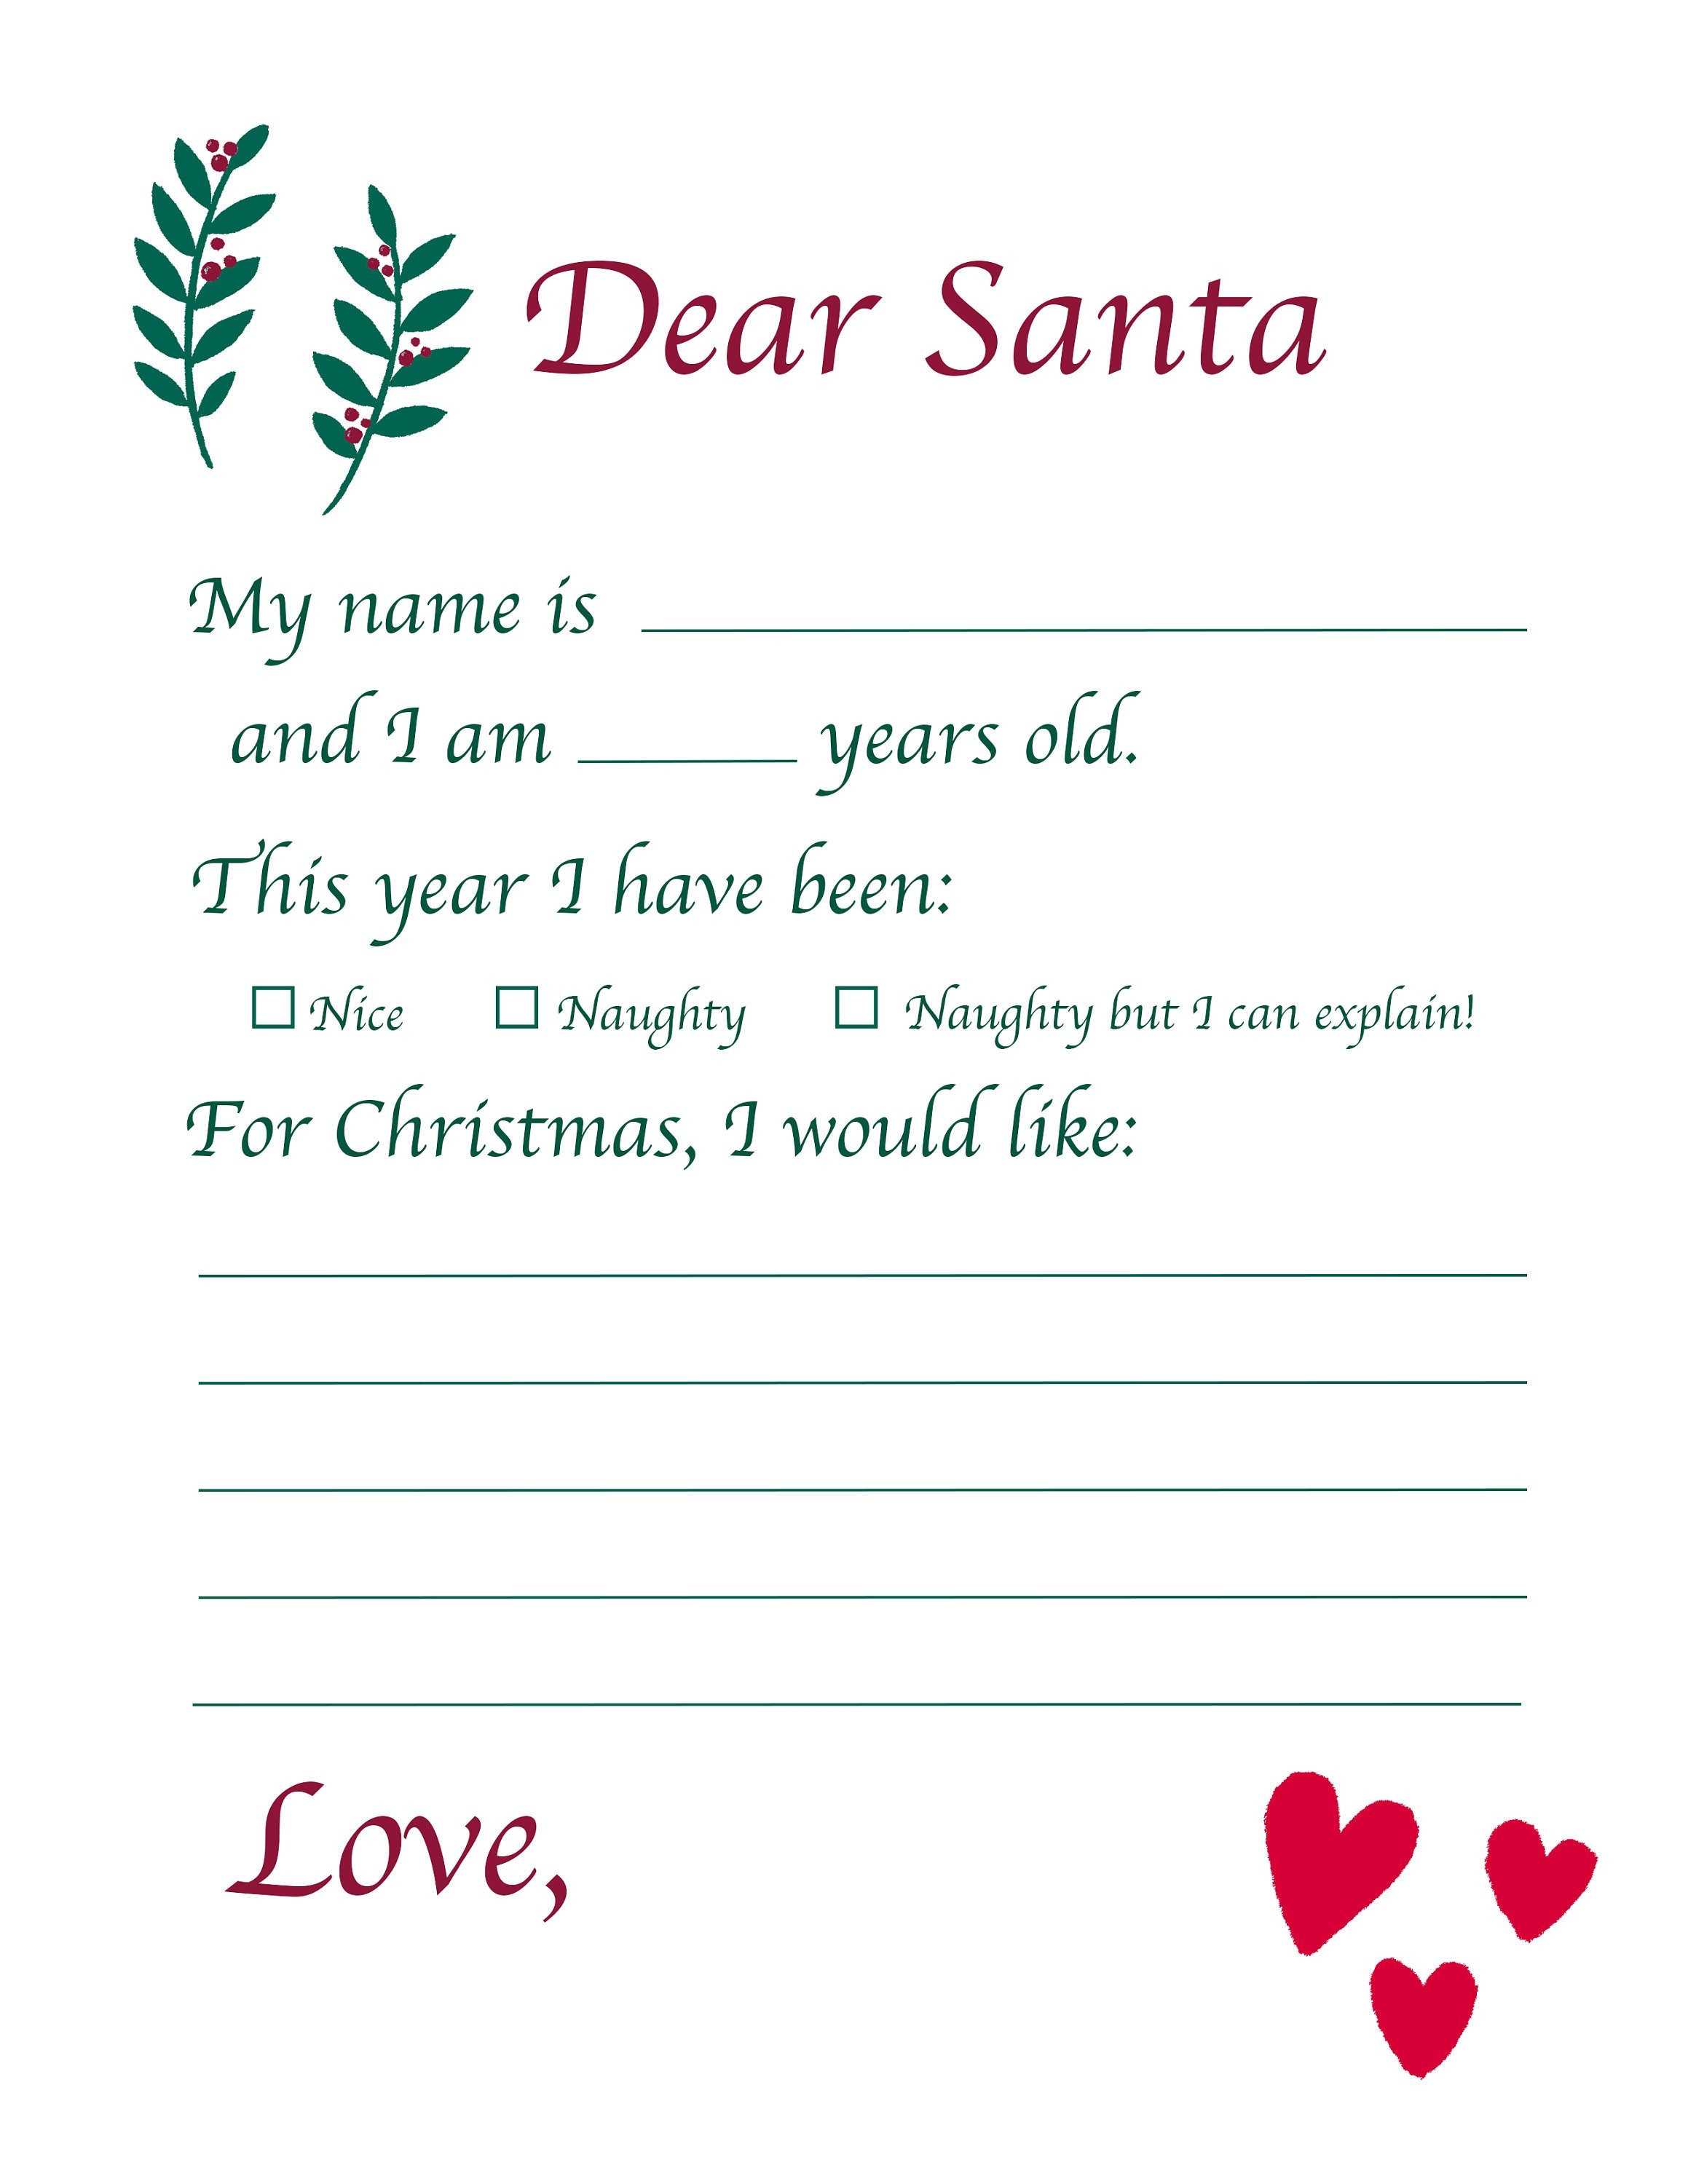 Dear Santa
My name is
and I am years old.
This year I have been:
Nice Naughty Naughty but I can explain!
For Christmas, I would like:
Love,